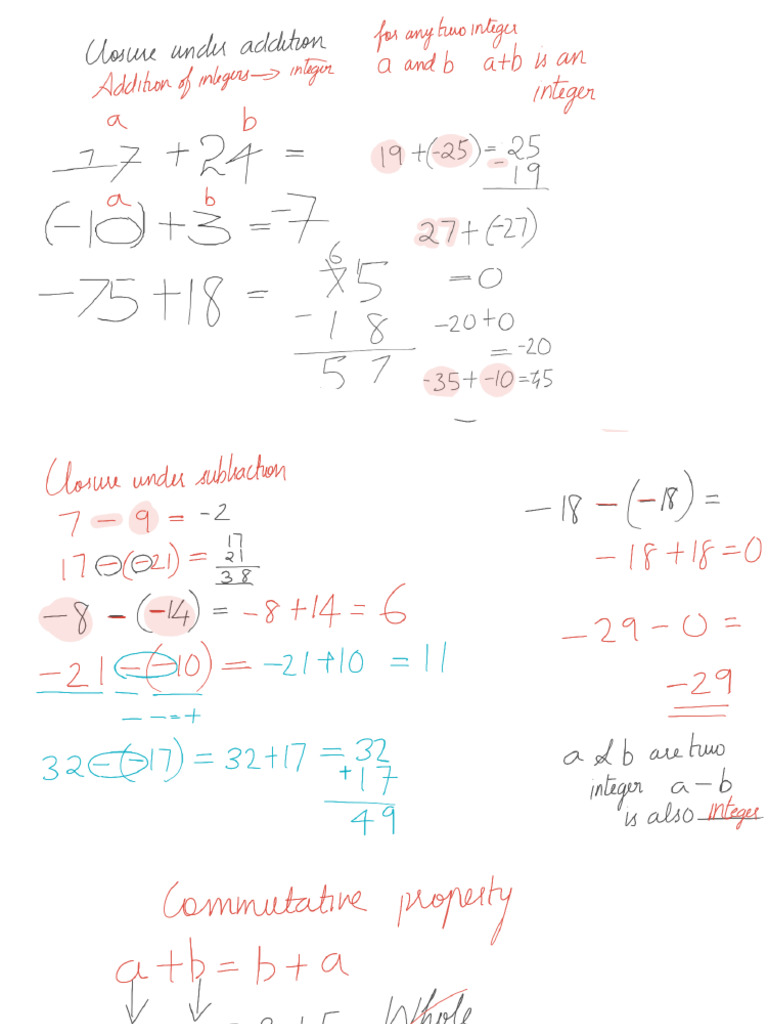 Closure under addition
Addition of integers → integer
for any two integer
a and b a+b is an
integer
a b
17 + 24 =
a b
(-10) + 3 = -7
-75 + 18 =
6 1
75
- 1 8
5 7
19 + (-25) = - 25
19
27 + (-27)
= 0
-20 + 0
= -20
-35 + -10 = -45
Closure under subtraction
7 - 9 = -2
17 - (-21) = 17
21
38
-8 - (-14) = -8 + 14 = 6
-21 - (-10) = -21 + 10 = 11
- - = +
32 - (-17) = 32 + 17 = 32
+ 17
49
-18 - (-18) =
-18 + 18 = 0
-29 - 0 =
-29
a & b are two
integer a - b
is also integer
Commutative property
a + b = b + a
Whole